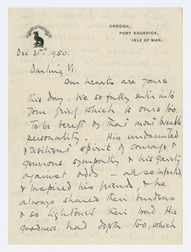 CROGGA,
PORT SODERICK,
ISLE OF MAN.
Dec 31st 1950.
Darling V.
Our hearts are yours
this day. We so fully enter into
your grief which is ours too.
To be bereft of that most lovable
personality. His undaunted
& resilient spirit of courage &
generous sympathy & his gaiety
against odds - all so infected
& inspired his friends, & he
always shared their burdens
& so lightened their load. His
goodness had depth too, which